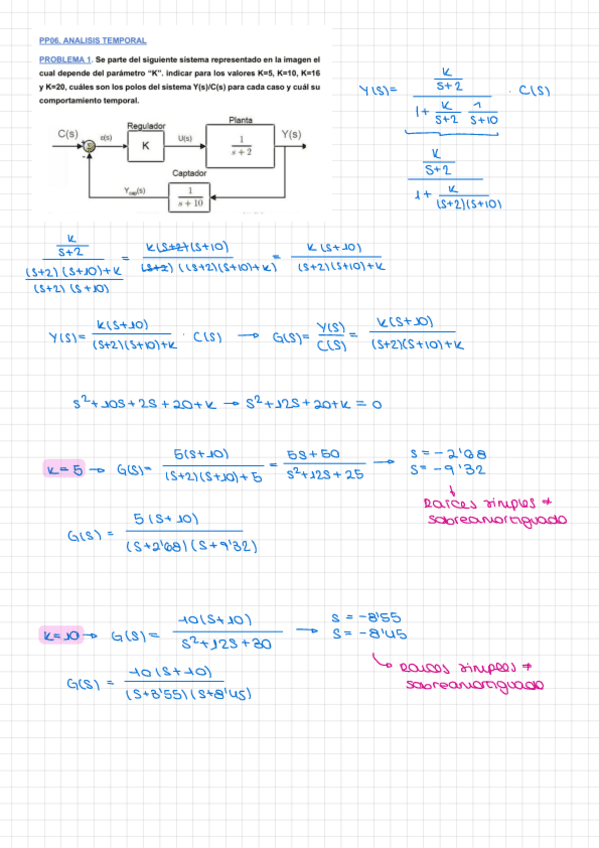 PP06. ANALISIS TEMPORAL
PROBLEMA 1. Se parte del siguiente sistema representado en la imagen el
cual depende del parámetro "K". indicar para los valores K=5, K=10, K=16
y K=20, cuáles son los polos del sistema Y(s)/C(s) para cada caso y cuál su
comportamiento temporal.
C(s) ε(s) Regulador K U(s) Planta 1/(s+2) Y(s)
Captador
Ycap(s) 1/(s+10)
Y(s) = (K/(s+2)) / (1 + K/(s+2) 1/(s+10)) · C(s)
(K/(s+2)) / (1 + K/((s+2)(s+10)))
(K/(s+2)) / (((s+2)(s+10)+K)/((s+2)(s+10))) = K(s+2)(s+10) / ((s+2)((s+2)(s+10)+K)) = K(s+10) / ((s+2)(s+10)+K)
Y(s) = K(s+10) / ((s+2)(s+10)+K) · C(s) → G(s) = Y(s)/C(s) = K(s+10) / ((s+2)(s+10)+K)
s²+10s+2s+20+K → s²+12s+20+K = 0
K=5 → G(s) = 5(s+10) / ((s+2)(s+10)+5) = (5s+50) / (s²+12s+25) → s = -2'68
s = -9'32
↓
Raíces simples →
sobreamortiguado
G(s) = 5(s+10) / ((s+2'68)(s+9'32))
K=10 → G(s) = 10(s+10) / (s²+12s+30) → s = -8'55
s = -8'45
Raices simples →
sobreamortiguado
G(s) = 10(s+10) / ((s+3'55)(s+8'45))